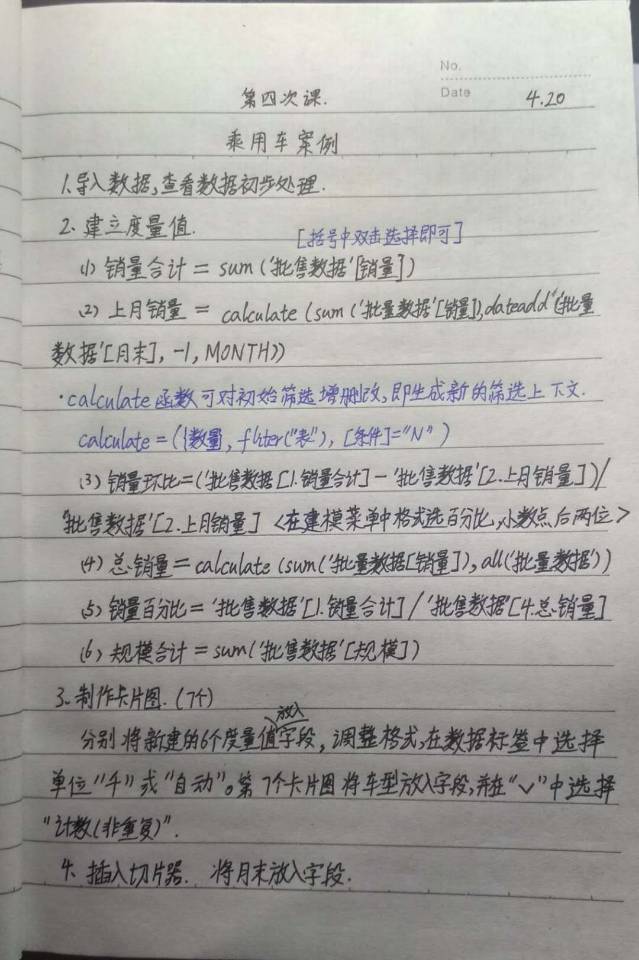 No.
第四次课.
Date 4.20
乘用车案例
1.导入数据,查看数据初步处理.
2、建立度量值.
[括号中双击选择即可]
(1) 销量合计 = sum ('批售数据'[销量])
(2) 上月销量 = calculate (sum ('批量数据'[销量]),dateadd('批量
数据'[月末], -1, MONTH))
·calculate 函数可对初始筛选增删改,即生成新的筛选上下文.
calculate = ({数量, fliter("表"), [条件]="N")
(3) 销量环比=('批售数据[1.销量合计] - '批售数据'[2.上月销量])/
'批售数据'[2.上月销量] <在建模菜单中格式选百分比,小数点后两位>
(4) 总销量 = calculate (sum('批量数据[销量]), all('批量数据'))
(5) 销量百分比 = '批售数据'[1.销量合计] / '批售数据'[4.总销量]
(6) 规模合计 = sum('批售数据'[规模])
3、制作卡片图. (7个)
分别将新建的6个度量值放入字段, 调整格式,在数据标签中选择
单位"千"或"自动"。第7个卡片图将车型放入字段,并在"∨"中选择
"计数(非重复)".
4、插入切片器. 将月末放入字段.